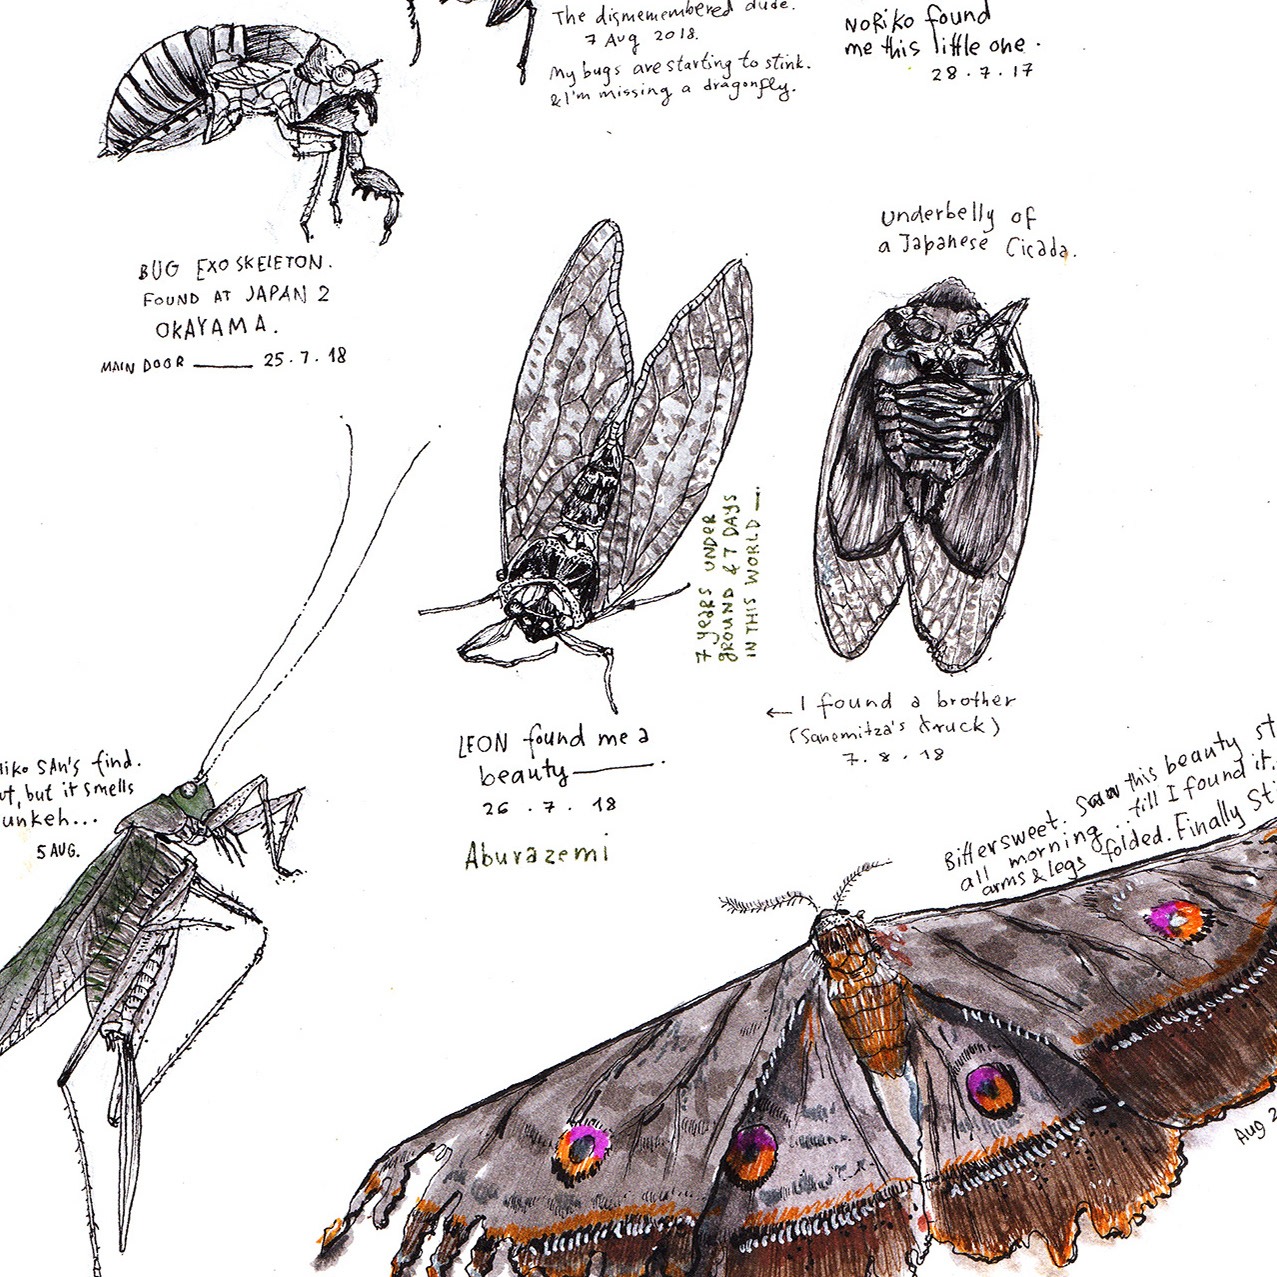 The dismemembered dude.
7 Aug 2018.
My bugs are starting to stink.
& I'm missing a dragonfly.
NORIKO found
me this little one.
28.7.17
BUG EXOSKELETON.
FOUND AT JAPAN 2
OKAYAMA.
MAIN DOOR — 25.7.18
Underbelly of
a Japanese Cicada.
7 years UNDER
GROUND & 7 DAYS
IN THIS WORLD —
LEON found me a
beauty —.
26.7.18
Aburazemi
← I found a brother
(Sanemitza's truck)
7.8.18
SAn's find.
but it smells
5 AUG.
Bittersweet. Saw this beauty
all morning.. till I found it.
arms & legs folded. Finally
Aug